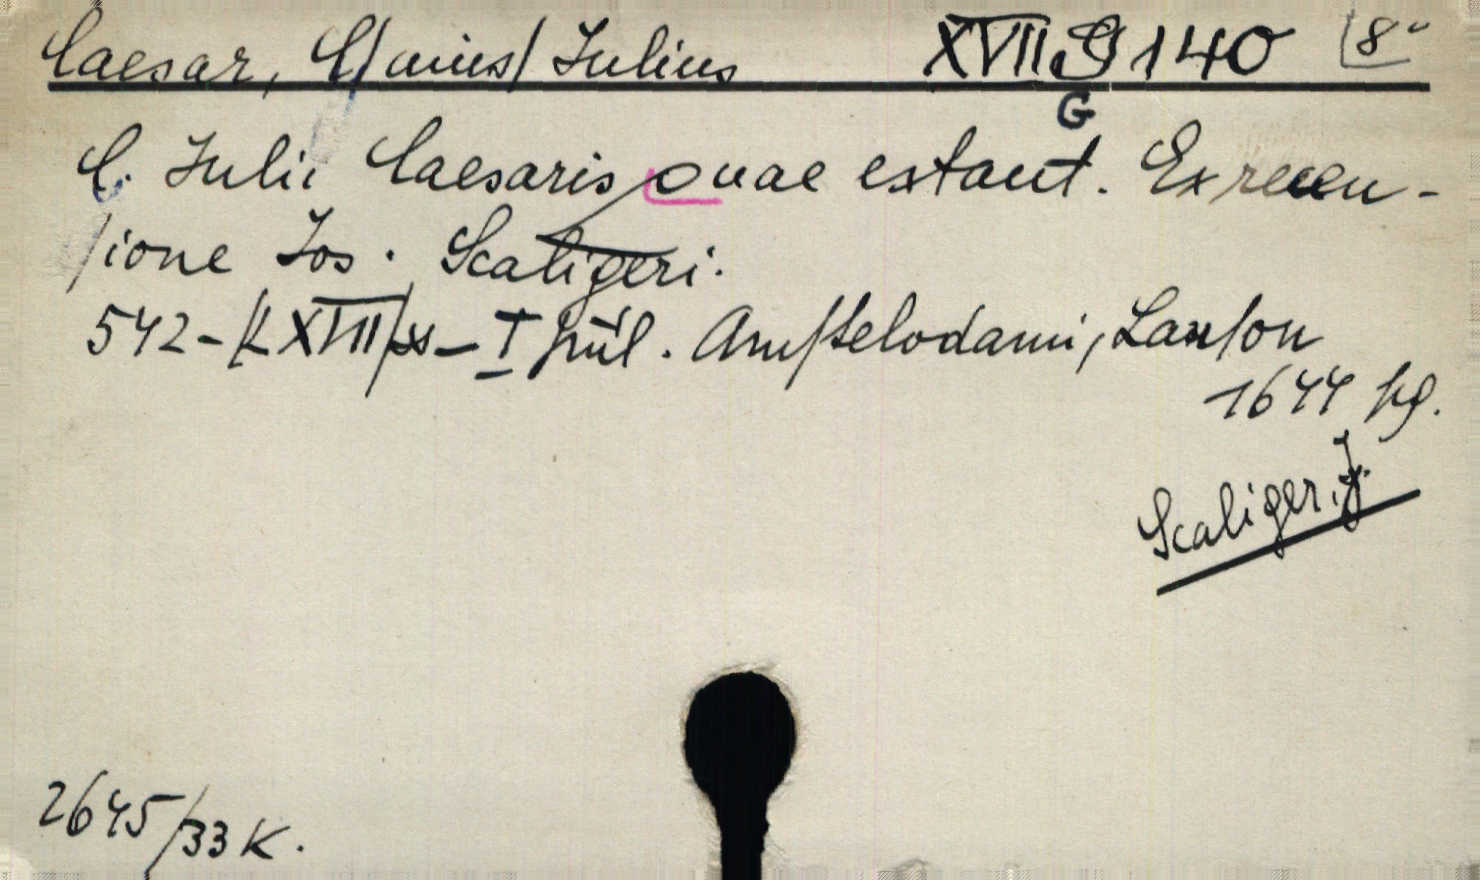 Caesar, C/aius/ Iulius XVII S 140 8°
G
C. Iulii Caesaris quae extant. Ex recen-
sione Jos. Scaligeri.
542-/LXVIII/ - 1 Amstelodami, Janson
1644 kg.
Scaliger, J.
2645/33 K.